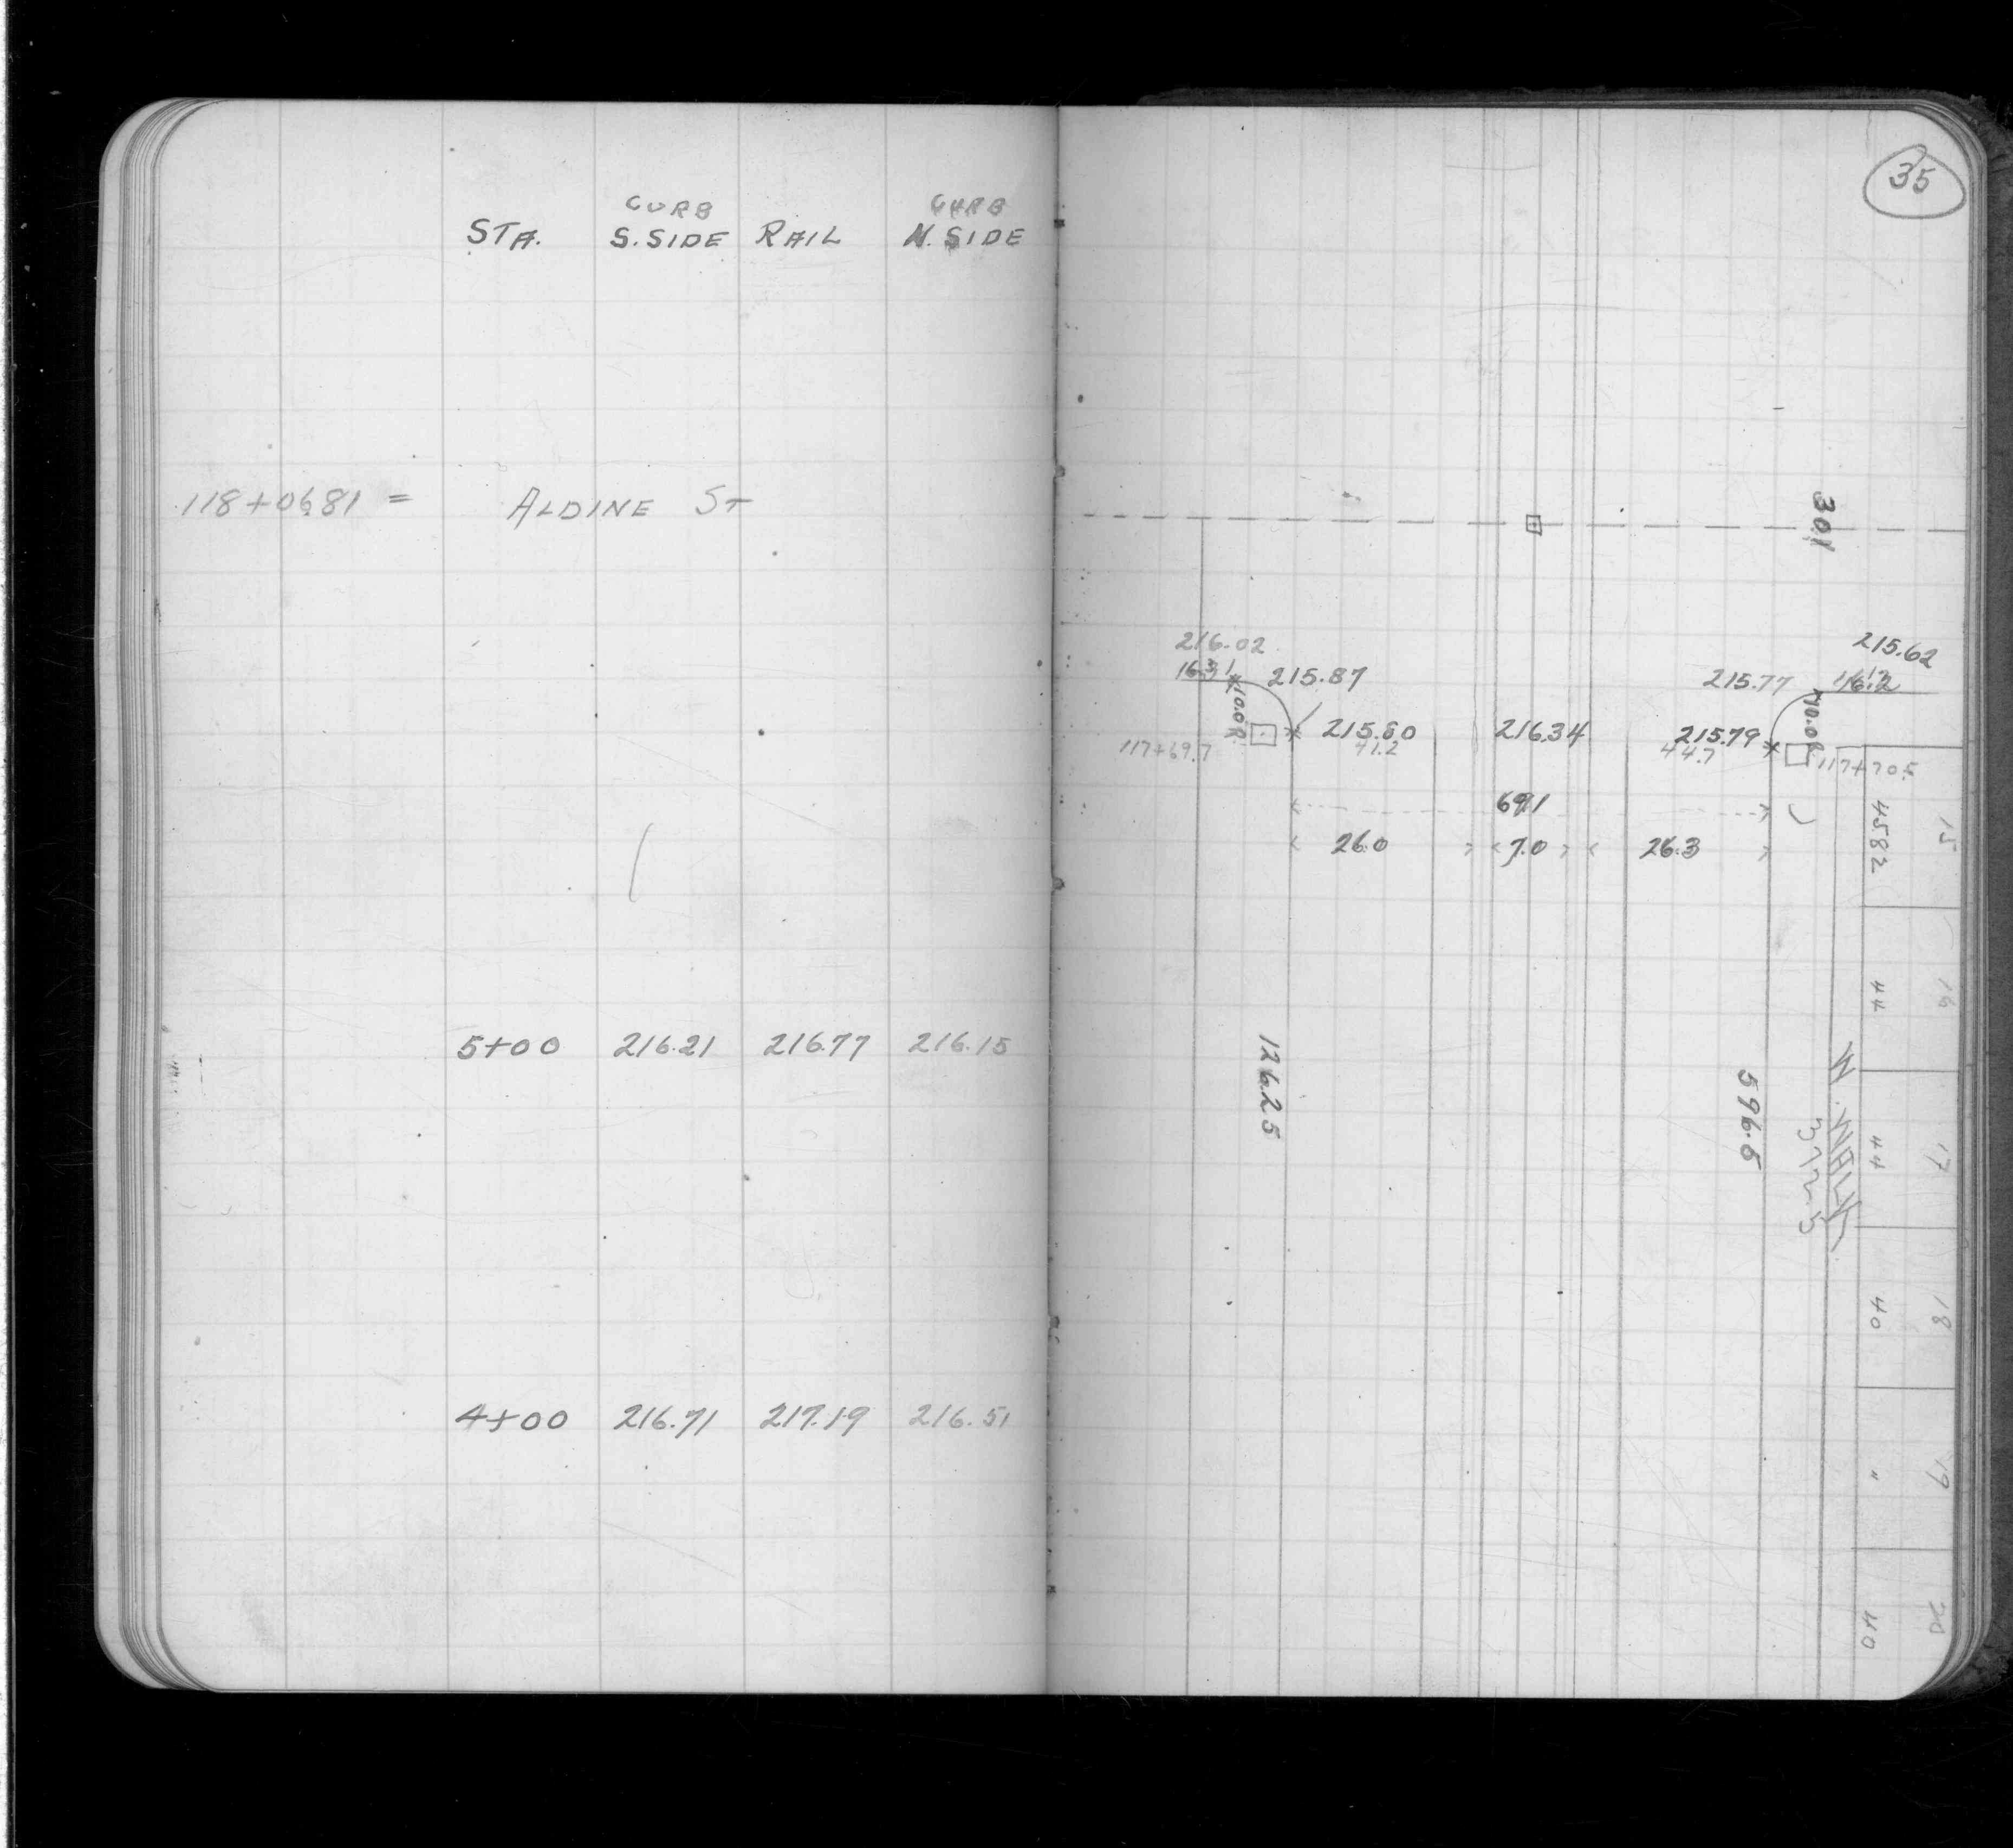 CURB CURB
STA. S.SIDE RAIL N. SIDE
118+0681 = ALDINE ST
5+00 216.21 216.77 216.15
4+00 216.71 217.19 216.51
35
301
216.02 215.62
163 215.87 215.77 16.2
10.0R 10.0R
215.60 216.34 215.79
117+69.7 41.2 44.7 117+70.5
691
26.0 7.0 26.3
1262.5
596.5
N. WALK
15 16 17 18 19 20
4582 44 44 40 " 40